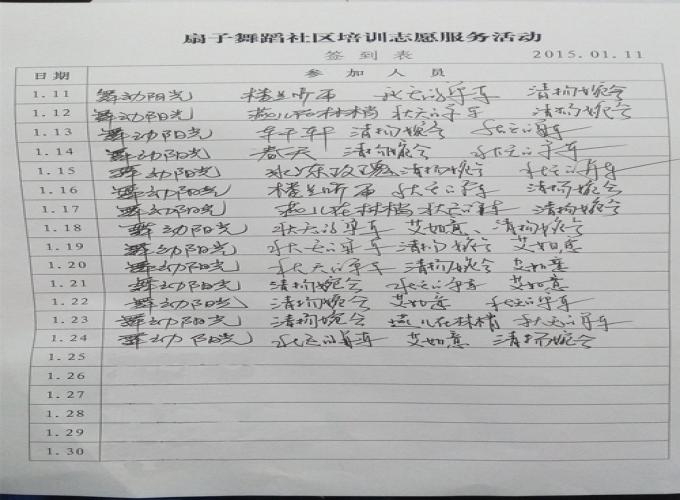 扇子舞蹈社区培训志愿服务活动
签到表 2015.01.11
日期 参加人员
1.11 舞动阳光 楼兰听雨 秋天的单车 清扬婉兮
1.12 舞动阳光 燕儿在林梢 秋天的单车 清扬婉兮
1.13 舞动阳光 清扬婉兮 秋天的单车
1.14 舞动阳光 春天 清扬婉兮 秋天的单车
1.15 舞动阳光 清扬婉兮 秋天的单车
1.16 舞动阳光 楼兰听雨 秋天的单车 清扬婉兮
1.17 舞动阳光 燕儿在林梢 秋天的单车 清扬婉兮
1.18 舞动阳光 秋天的单车 艾如意、清扬婉兮
1.19 舞动阳光 秋天的单车 清扬婉兮 艾如意
1.20 舞动阳光 秋天的单车 清扬婉兮 艾如意
1.21 舞动阳光 清扬婉兮 秋天的单车 艾如意
1.22 舞动阳光 清扬婉兮 艾如意 秋天的单车
1.23 舞动阳光 清扬婉兮 燕儿在林梢 秋天的单车
1.24 舞动阳光 秋天的单车 艾如意 清扬婉兮
1.25
1.26
1.27
1.28
1.29
1.30